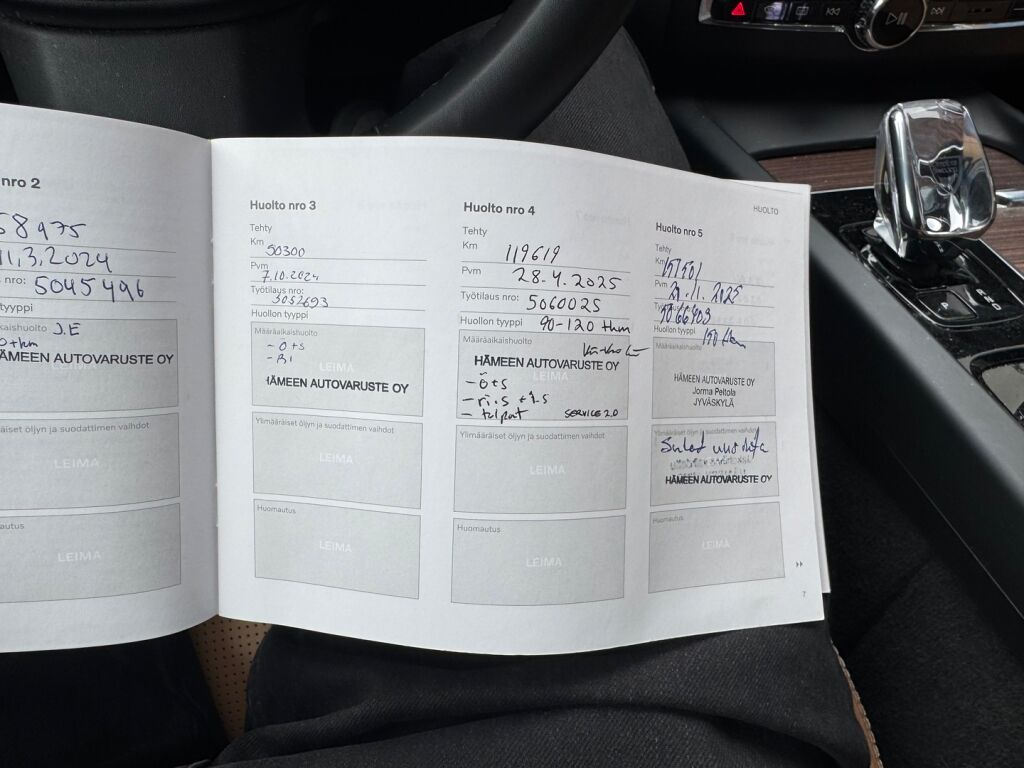 nro 2
58975
11.3.2024
s nro: 5045496
yyppi
kaishuolto J.E
HÄMEEN AUTOVARUSTE OY
äiset öljyn ja suodattimen vaihdot
LEIMA
autus
LEIMA
Huolto nro 3
Tehty
Km 50300
Pvm 7.10.2024
Työtilaus nro: 5052693
Huollon tyyppi
Määräaikaishuolto
- ö+s
LEIMA
HÄMEEN AUTOVARUSTE OY
Ylimääräiset öljyn ja suodattimen vaihdot
LEIMA
Huomautus
LEIMA
Huolto nro 4
Tehty
Km 119619
Pvm 28.4.2025
Työtilaus nro: 5060025
Huollon tyyppi 90-120 tkm
Määräaikaishuolto
HÄMEEN AUTOVARUSTE OY
LEIMA
- ö+s
- tulpat SERVICE 2.0
Ylimääräiset öljyn ja suodattimen vaihdot
LEIMA
Huomautus
LEIMA
HUOLTO
Huolto nro 5
Tehty
Km 151501
Pvm
Huollon tyyppi 150 tkm
Määräaikaishuolto
HÄMEEN AUTOVARUSTE OY
Jorma Peltola
JYVÄSKYLÄ
Ylimääräiset öljyn ja suodattimen vaihdot
HÄMEEN AUTOVARUSTE OY
Huomautus
LEIMA
7
P
R
N
D